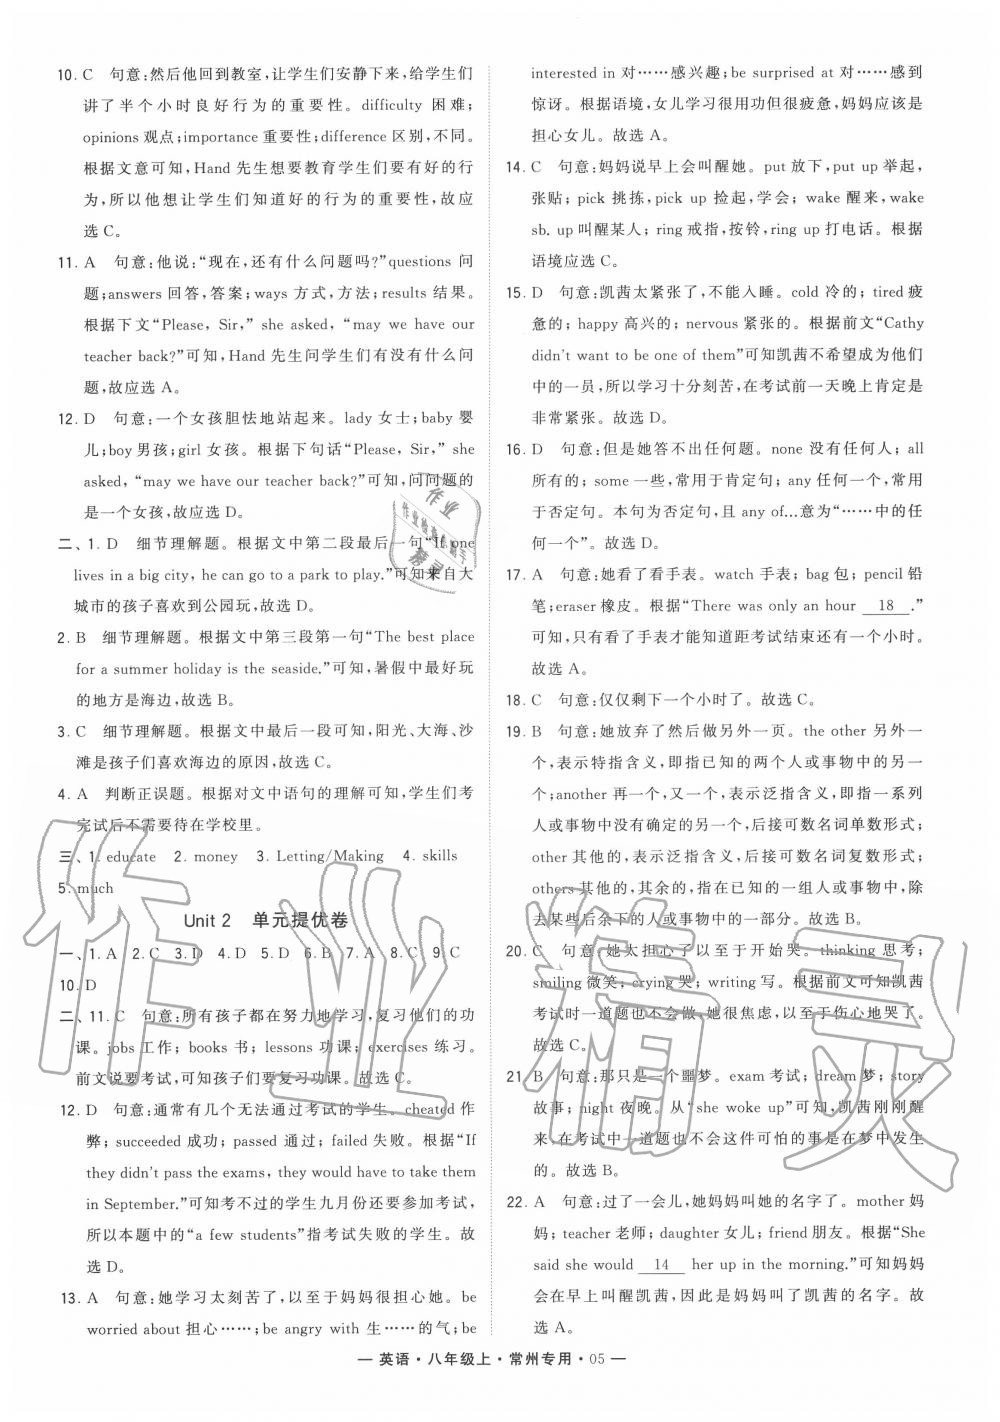 10. C　句意:然后他回到教室,让学生们安静下来,给学生们
讲了半个小时良好行为的重要性。difficulty 困难;
opinions 观点;importance 重要性;difference 区别,不同。
根据文意可知,Hand 先生想要教育学生们要有好的行
为,所以他想让学生们知道好的行为的重要性,故应
选 C。
11. A　句意:他说:“现在,还有什么问题吗?”questions 问
题;answers 回答,答案;ways 方式,方法;results 结果。
根据下文“Please, Sir,” she asked, “may we have our
teacher back?”可知,Hand 先生问学生们有没有什么问
题,故应选 A。
12. D　句意:一个女孩胆怯地站起来。lady 女士;baby 婴
儿;boy 男孩;girl 女孩。根据下句话“Please, Sir,” she
asked, “may we have our teacher back?”可知,问问题的
是一个女孩,故应选 D。
二、1. D　细节理解题。根据文中第二段最后一句“If one
lives in a big city, he can go to a park to play.”可知来自大
城市的孩子喜欢到公园玩,故选 D。
2. B　细节理解题。根据文中第三段第一句“The best place
for a summer holiday is the seaside.”可知,暑假中最好玩
的地方是海边,故选 B。
3. C　细节理解题。根据文中最后一段可知,阳光、大海、沙
滩是孩子们喜欢海边的原因,故选 C。
4. A　判断正误题。根据对文中语句的理解可知,学生们考
完试后不需要待在学校里。
三、1. educate　2. money　3. Letting/Making　4. skills
5. much
Unit 2　单元提优卷
一、1. A　2. C　3. D　4. D　5. D　6. B　7. A　8. C　9. C
10. D
二、11. C　句意:所有孩子都在努力地学习,复习他们的功
课。jobs 工作;books 书;lessons 功课;exercises 练习。
前文说要考试,可知孩子们要复习功课。故选 C。
12. D　句意:通常有几个无法通过考试的学生。cheated 作
弊;succeeded 成功;passed 通过;failed 失败。根据“If
they didn't pass the exams, they would have to take them
in September.”可知考不过的学生九月份还要参加考试,
所以本题中的“a few students”指考试失败的学生。故
选 D。
13. A　句意:她学习太刻苦了,以至于妈妈很担心她。be
worried about 担心……;be angry with 生……的气;be
interested in 对……感兴趣;be surprised at 对……感到
惊讶。根据语境,女儿学习很用功但很疲惫,妈妈应该是
担心女儿。故选 A。
14. C　句意:妈妈说早上会叫醒她。put 放下,put up 举起,
张贴;pick 挑拣,pick up 捡起,学会;wake 醒来,wake
sb. up 叫醒某人;ring 戒指,按铃,ring up 打电话。根据
语境应选 C。
15. D　句意:凯茜太紧张了,不能入睡。cold 冷的;tired 疲
惫的;happy 高兴的;nervous 紧张的。根据前文“Cathy
didn't want to be one of them”可知凯茜不希望成为他们
中的一员,所以学习十分刻苦,在考试前一天晚上肯定是
非常紧张。故选 D。
16. D　句意:但是她答不出任何题。none 没有任何人;all
所有的;some 一些,常用于肯定句;any 任何一个,常用
于否定句。本句为否定句,且 any of…意为“……中的任
何一个”。故选 D。
17. A　句意:她看了看手表。watch 手表;bag 包;pencil 铅
笔;eraser 橡皮。根据“There was only an hour 18 .”
可知,只有看了手表才能知道距考试结束还有一个小时。
故选 A。
18. C　句意:仅仅剩下一个小时了。故选 C。
19. B　句意:她放弃了然后做另外一页。the other 另外一
个,表示特指含义,即指已知的两个人或事物中的另一
个;another 再一个,又一个,表示泛指含义,即指一系列
人或事物中没有确定的另一个,后接可数名词单数形式;
other 其他的,表示泛指含义,后接可数名词复数形式;
others 其他的,其余的,指在已知的一组人或事物中,除
去某些后余下的人或事物中的一部分。故选 B。
20. C　句意:她太担心了以至于开始哭。thinking 思考;
smiling 微笑;crying 哭;writing 写。根据前文可知凯茜
考试时一道题也不会做,她很焦虑,以至于伤心地哭了。
故选 C。
21. B　句意:那只是一个噩梦。exam 考试;dream 梦;story
故事;night 夜晚。从“she woke up”可知,凯茜刚刚醒
来,在考试中一道题也不会这件可怕的事是在梦中发生
的。故选 B。
22. A　句意:过了一会儿,她妈妈叫她的名字了。mother 妈
妈;teacher 老师;daughter 女儿;friend 朋友。根据“She
said she would 14 her up in the morning.”可知妈妈
会在早上叫醒凯茜,因此是妈妈叫了凯茜的名字。故
选 A。
— 英语·八年级上·常州专用·05 —
作业精灵